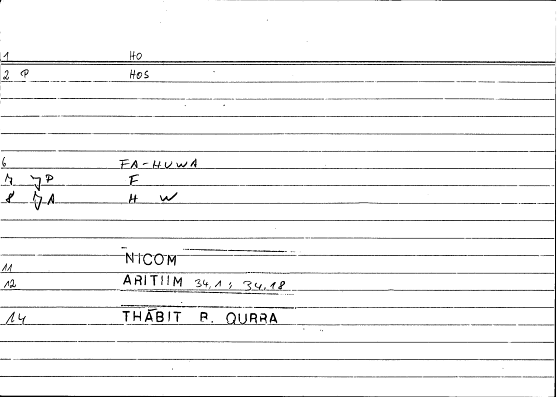 1 HO
2 P HOS
6 FA-HUWA
7 P F
8 A H W
NICOM
11
12 ARITIIM 34,1; 34,18
14 THĀBIT B. QURRA